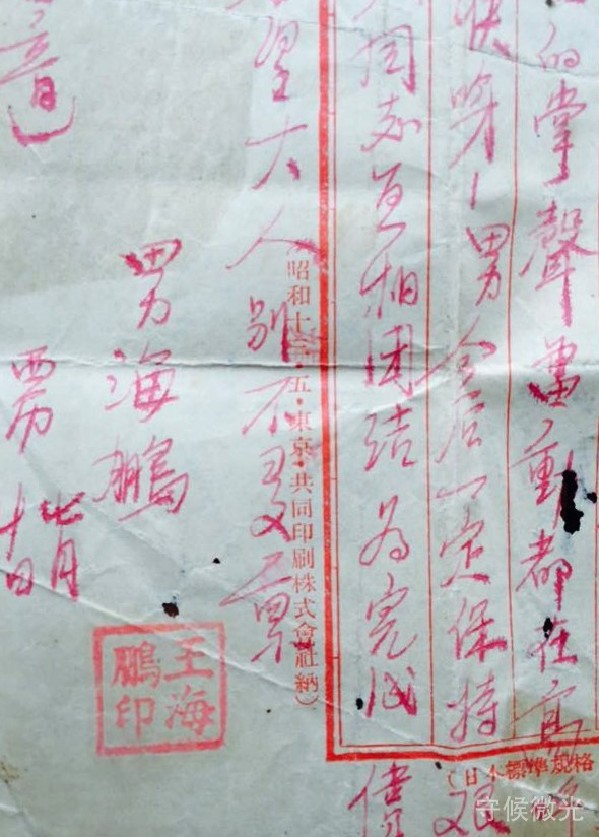 的掌聲雷動都在高
男今后一定保持
同志互相团结为完成
望大人別不多累
男海鵬
西历 七月
十日
音
昭和十三·五·東京·共同印刷株式會社納)
(日本標準規格
王海鵬印
守候微光